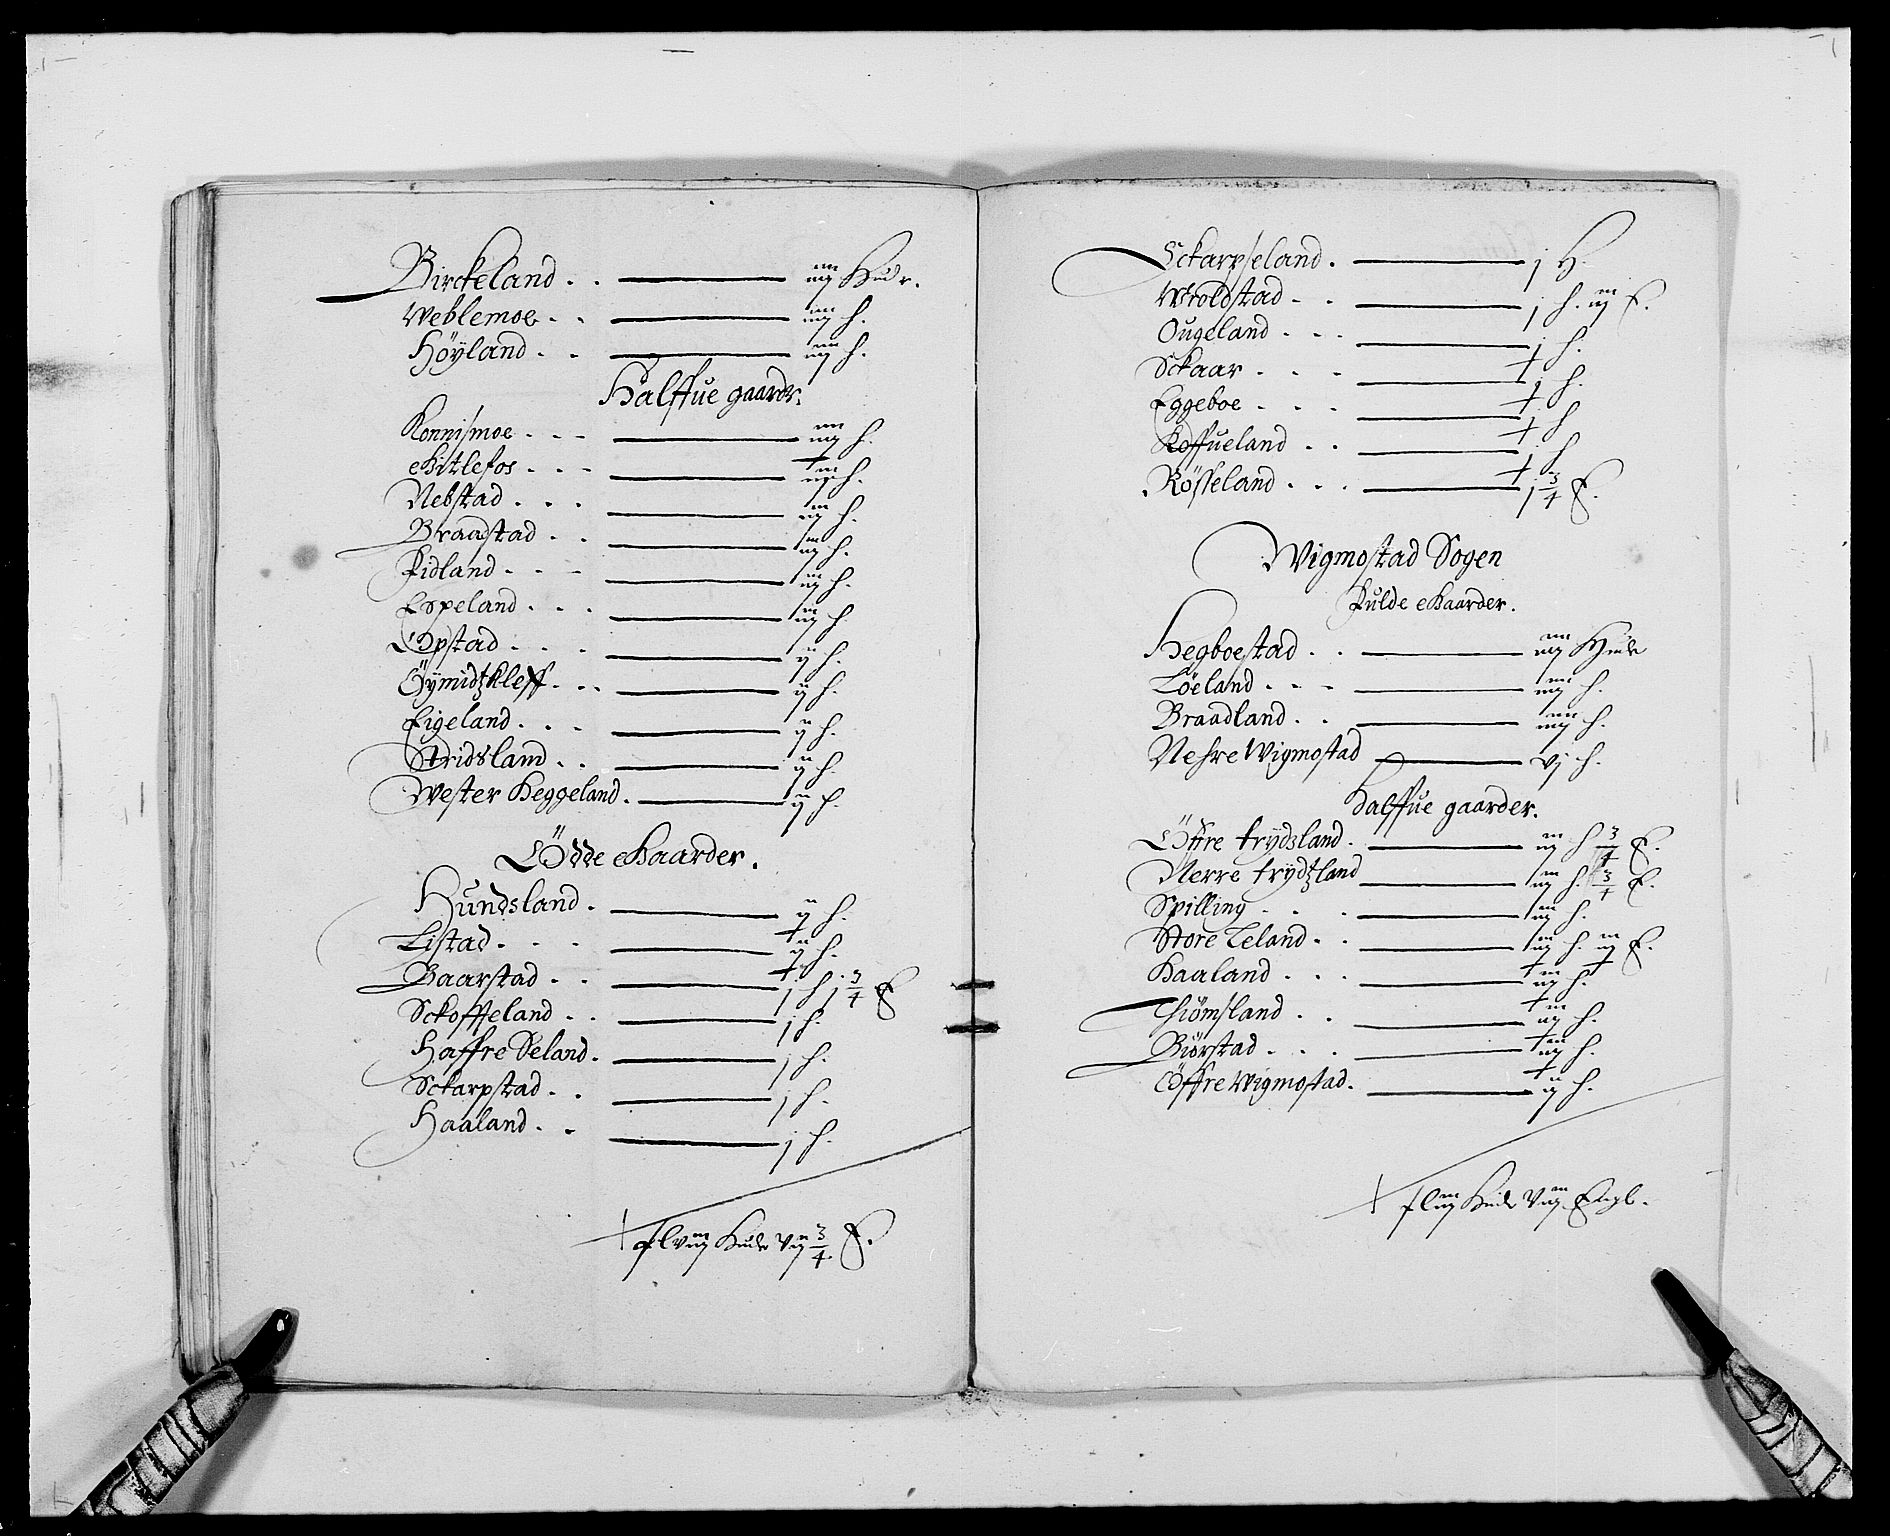 Birckeland . . iiij Hudr.
Weblemoe . . iiij h.
Höyland . . iiij h.
Halffue gaardr.
Konnismoe . . . iiij h.
Gitlefos . . . iij h.
Nebstad . . . iij h.
Braadstad . . iij h.
Fidland . . . iij h.
Espeland . . . iij h
Opstad . . . ij h.
Öÿmidtzkleff . . . ij h.
Eigeland . . . ij h.
Stridsland . . ij h.
Wester Heggeland . ij h.
Ödde Gaarder .
Hundsland . ij h.
Listad . . . ij h.
Baarstad . . j h j 3/4 E
Sckoffteland . . j h.
Haffre Seland . j h.
Sckarpstad . . j h.
Haaland . . j h.
flviij Hude vij 3/4 E.
Sckarpseland . j H.
Wroldstad . . j h. iij E.
Ougeland . . . j h.
Sckaar . . . j h.
Eggeboe . . . j h
Koffueland . . j h
Rösseland . . . j 3/4 E.
Wigmostad Sogen
Fulde Gaarder .
Hegboestad . . iiij Hude
Löeland . . . iiij h.
Braadland . . iiij h.
Nehre Wigmostad vj h.
Halffue gaarder .
Öffre trydsland . iij h 3/4 E.
Nerre trydtzland iij h. 3/4 E.
Spilling . . . iij h.
Store Leland . . iij h. iij E.
Haaland . . . iij h.
Thiömsland . . iij h.
Biörstad . . . iij h.
Öffre Wigmostad . ij h.
fliij Hude viij Engl .